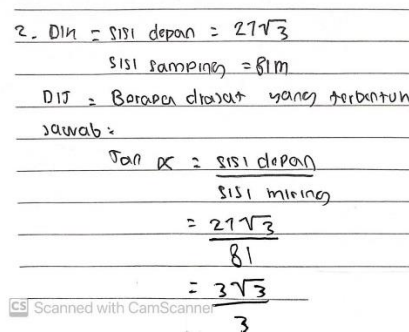 2. Dik = sisi depan = 27√3
sisi samping = 81m
DIJ = Berapa drajat yang terbentuk
Jawab :
Tan α = sisi depan / sisi miring
= 27√3 / 81
= 3√3 / 3
CS Scanned with CamScanner